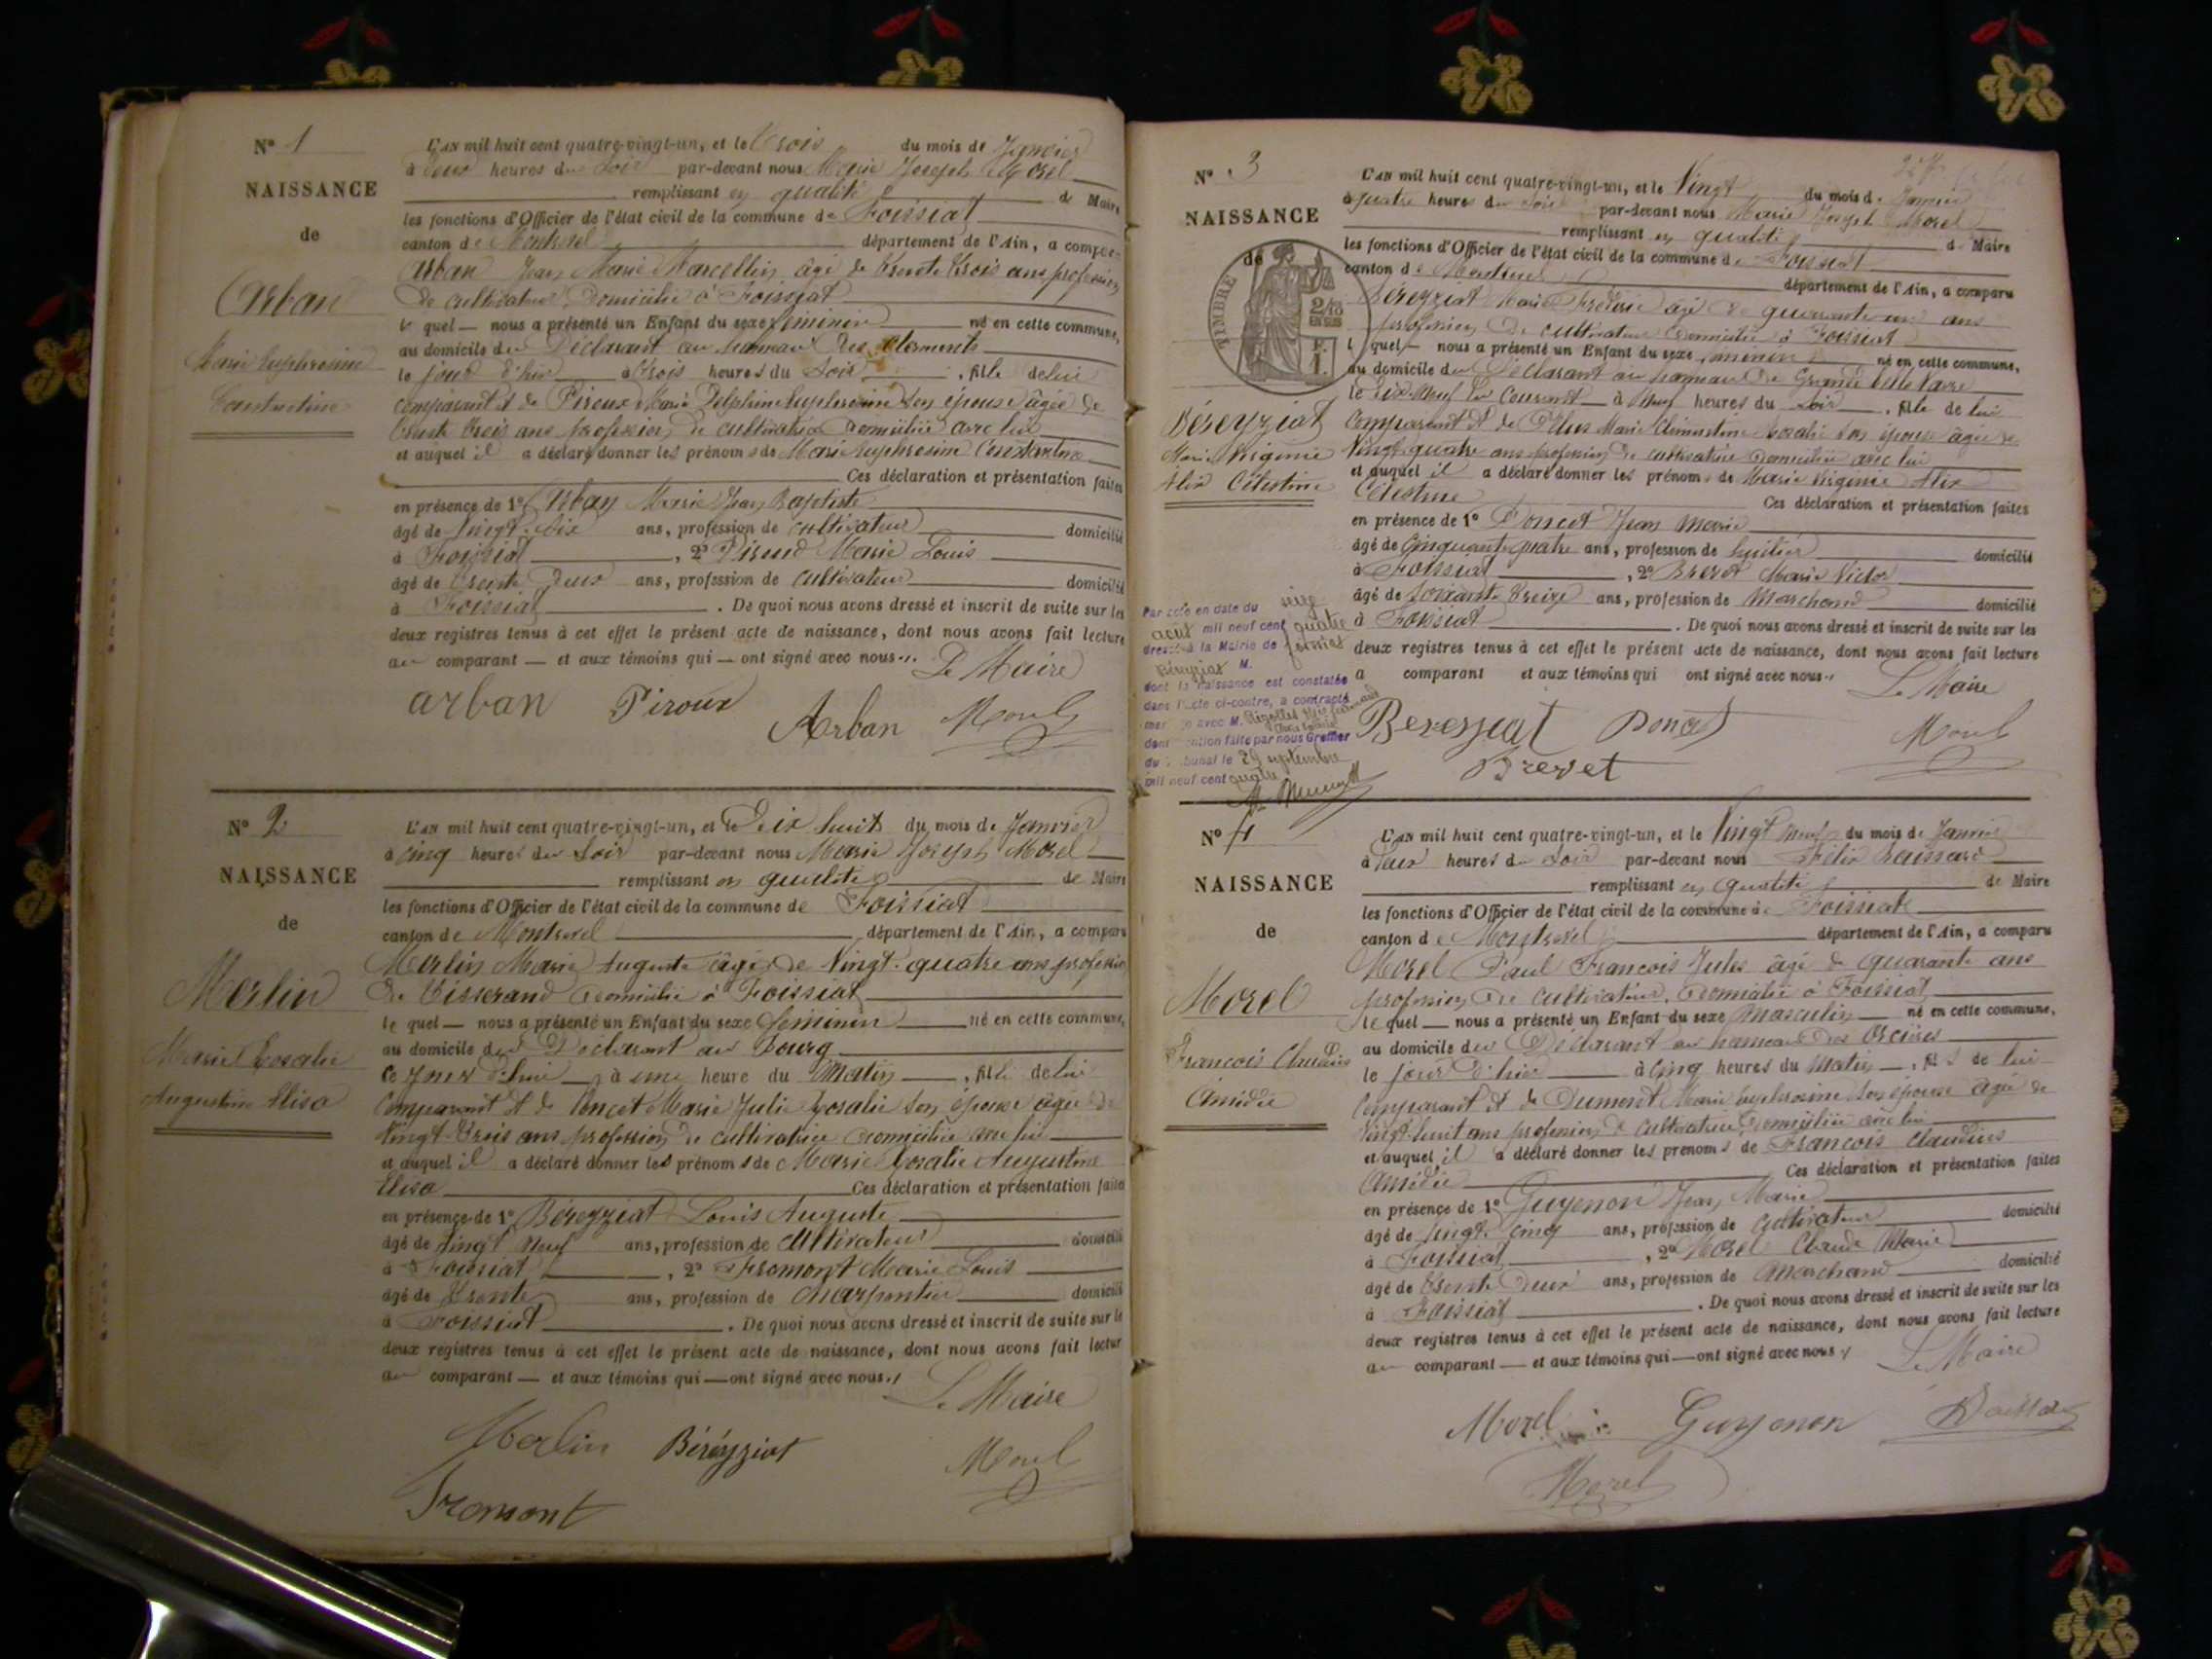 N° 1
NAISSANCE
de
Arban
Marie Euphrosine
Constantine
L'AN mil huit cent quatre-vingt-un, et le Trois du mois de Janvier
à deux heures du Soir par-devant nous Marie Joseph Morel
remplissant en qualité de Maire
les fonctions d'Officier de l'état civil de la commune de Foissiat
canton de Montrevel département de l'Ain, a comparu
Arban Jean Marie Marcellin âgé de trente trois ans profession
de cultivateur Domicilié à Foissiat
le quel — nous a présenté un Enfant du sexe féminin né en cette commune,
au domicile du Déclarant au hameau des Clermonts
le jour d'hier à trois heures du Soir, fille de lui
comparant et de Piroux Marie Delphine Euphrosine son épouse âgée de
trente trois ans profession de cultivatrice domiciliée avec lui
et auquel il a déclaré donner les prénoms de Marie Euphrosine Constantine
Ces déclaration et présentation faites
en présence de 1° Arban Marie Jean Baptiste
âgé de Vingt six ans, profession de cultivateur domicilié
à Foissiat, 2° Piroud Marie Louis
âgé de trente deux ans, profession de cultivateur domicilié
à Foissiat. De quoi nous avons dressé et inscrit de suite sur les
deux registres tenus à cet effet le présent acte de naissance, dont nous avons fait lecture
au comparant — et aux témoins qui — ont signé avec nous.
Le Maire
arban Piroux
Arban Morel
N° 2
NAISSANCE
de
Merlin
Marie Rosalie
Augustine Elisa
L'AN mil huit cent quatre-vingt-un, et le Dix huit du mois de Janvier
à cinq heures du Soir par-devant nous Marie Joseph Morel
remplissant en qualité de Maire
les fonctions d'Officier de l'état civil de la commune de Foissiat
canton de Montrevel département de l'Ain, a comparu
Merlin Marie Auguste âgé de Vingt quatre ans profession
de Tisserand Domicilié à Foissiat
le quel — nous a présenté un Enfant du sexe féminin né en cette commune,
au domicile du Déclarant au Bourg
ce jour d'hui à une heure du Matin, fille de lui
Comparant et de Poncet Marie Julie Rosalie son épouse âgée de
Vingt trois ans profession de cultivatrice domiciliée avec lui
et auquel il a déclaré donner les prénoms de Marie Rosalie Augustine
Elisa Ces déclaration et présentation faites
en présence de 1° Béreyziat Louis Auguste
âgé de Vingt Neuf ans, profession de cultivateur domicilié
à Foissiat, 2° Fromont Marie Louis
âgé de Trente ans, profession de charpentier domicilié
à Foissiat. De quoi nous avons dressé et inscrit de suite sur les
deux registres tenus à cet effet le présent acte de naissance, dont nous avons fait lecture
au comparant — et aux témoins qui — ont signé avec nous.
Le Maire
Merlin Béréyziat Morel
Fromont
N° 3
NAISSANCE
de
TIMBRE
Béreyziat
Marie Virginie
Alix Célestine
L'AN mil huit cent quatre-vingt-un, et le Vingt du mois de Janvier
à quatre heures du Soir par-devant nous Marie Joseph Morel
remplissant en qualité de Maire
les fonctions d'Officier de l'état civil de la commune de Foissiat
canton de Montrevel département de l'Ain, a comparu
Béreyziat Marie Frédéric âgé de quarante un ans
profession de cultivateur Domicilié à Foissiat
le quel — nous a présenté un Enfant du sexe féminin né en cette commune,
au domicile du Déclarant au hameau de Grande
le Dix-Neuf du courant à Neuf heures du Soir, fille de lui
Comparant et de Marie Clémentine Rosalie son épouse âgée de
Vingt quatre ans profession de cultivatrice domiciliée avec lui
et auquel il a déclaré donner les prénoms de Marie Virginie Alix
Célestine Ces déclaration et présentation faites
en présence de 1° Poncet Jean Marie
âgé de Cinquante quatre ans, profession de huilier domicilié
à Foissiat, 2° Brevet Marie Victor
âgé de Soixante treize ans, profession de Marchand domicilié
à Foissiat. De quoi nous avons dressé et inscrit de suite sur les
deux registres tenus à cet effet le présent acte de naissance, dont nous avons fait lecture
a comparant et aux témoins qui ont signé avec nous.
Le Maire
Par acte en date du seize
août mil neuf cent quatre
dressé à la Mairie de foissiat
Béreyziat M.
dont la naissance est constatée
dans l'acte ci-contre, a contracté
mariage avec M.
dont mention faite par nous Greffier
du Tribunal le 29 septembre
mil neuf cent quatre
Bereyziat Poncet Morel
Brevet
N° 4
NAISSANCE
de
Morel
François Claudius
Amédée
L'AN mil huit cent quatre-vingt-un, et le Vingt neuf du mois de Janvier
à deux heures du Soir par-devant nous Félix
remplissant en qualité de Maire
les fonctions d'Officier de l'état civil de la commune de Foissiat
canton de Montrevel département de l'Ain, a comparu
Morel Paul François Jules âgé de quarante ans
profession de cultivateur, Domicilié à Foissiat
le quel — nous a présenté un Enfant du sexe Masculin — né en cette commune,
au domicile du Déclarant au hameau des Orcières
le jour d'hier à cinq heures du Matin —, fils de lui
Comparant et de Dumont Marie Euphrosine son épouse âgée de
Vingt huit ans profession de cultivatrice domiciliée avec lui
et auquel il a déclaré donner les prénoms de François Claudius
Amédée Ces déclaration et présentation faites
en présence de 1° Guyenon Jean Marie
âgé de Vingt cinq ans, profession de cultivateur domicilié
à Foissiat, 2° Morel Claude Marie
âgé de trente deux ans, profession de Marchand domicilié
à Foissiat. De quoi nous avons dressé et inscrit de suite sur les
deux registres tenus à cet effet le présent acte de naissance, dont nous avons fait lecture
au comparant — et aux témoins qui — ont signé avec nous.
Le Maire
Morel Guyenon
Morel